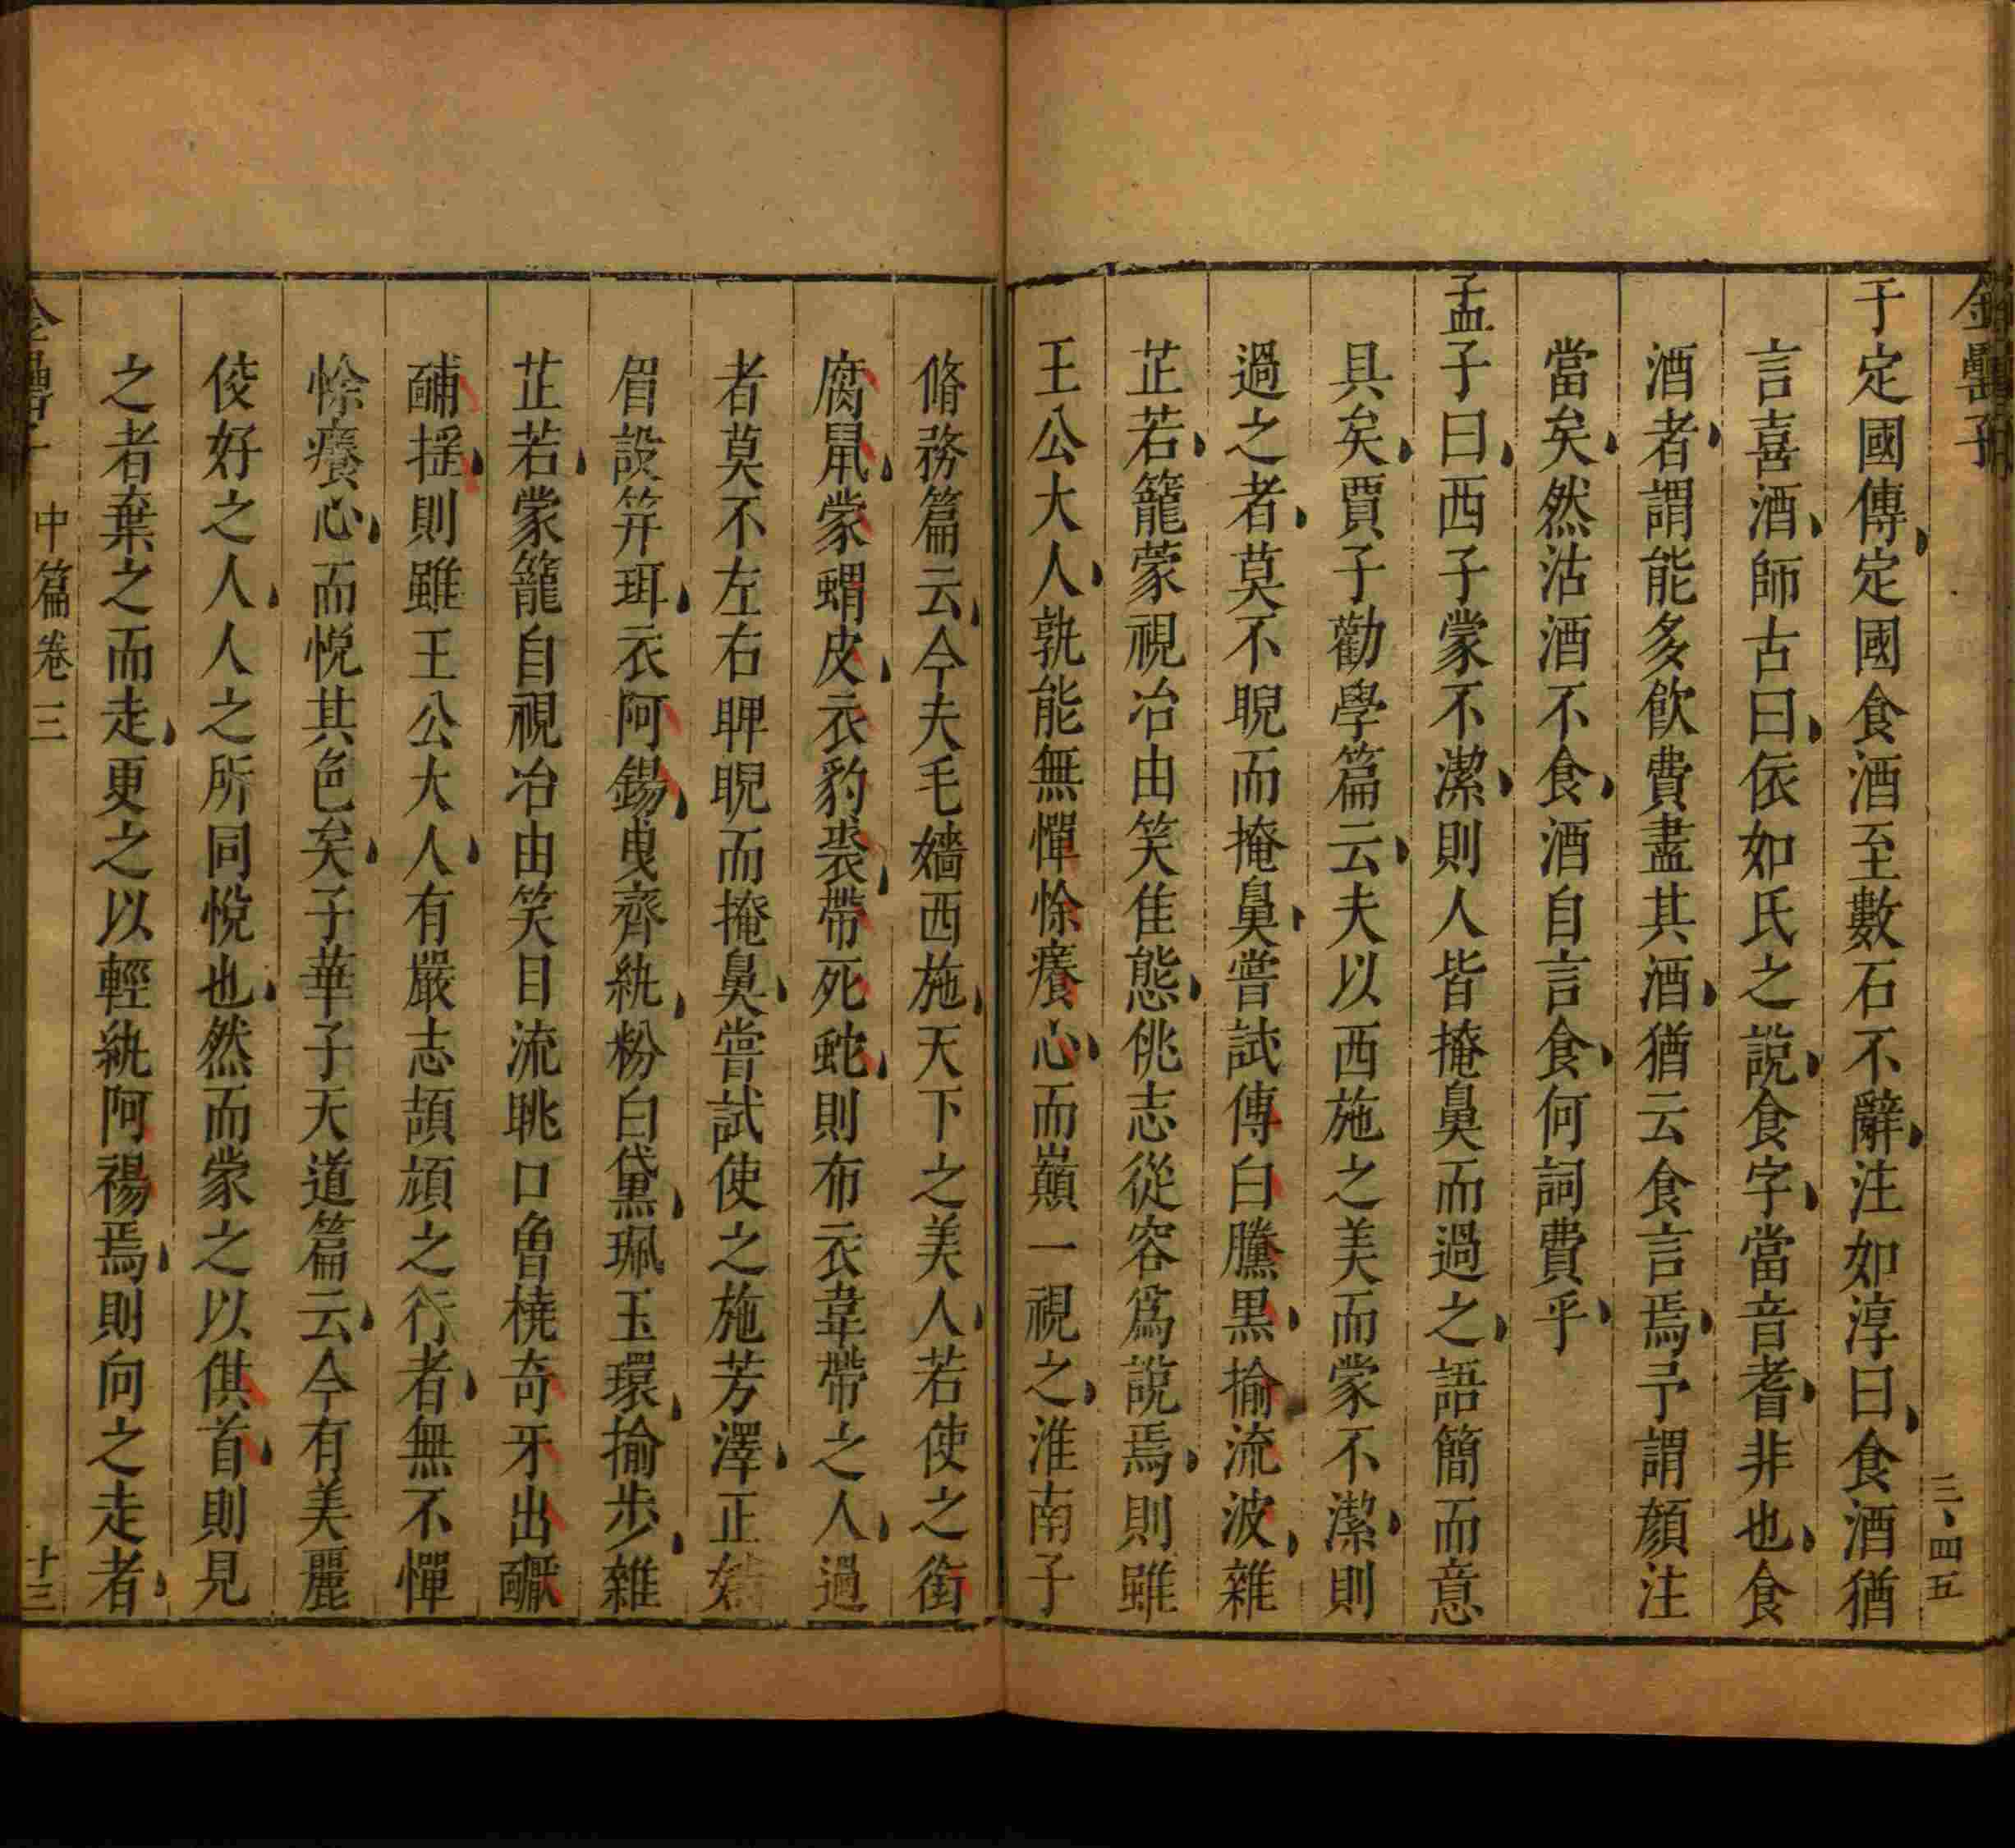 金罍子
三、四五
于定國傳定國食酒至數石不辭注如淳曰食酒猶
言喜酒師古曰依如氏之說食字當音耆非也食
酒者謂能多飲費盡其酒猶云食言焉予謂顔注
當矣然沽酒不食酒自言食何詞費乎
孟子曰西子蒙不潔則人皆掩鼻而過之語簡而意
具矣賈子勸學篇云夫以西施之美而蒙不潔則
過之者莫不睨而掩鼻嘗試傅白黱黒揄流波雜
芷若籠蒙視冶由笑隹態佻志從容爲說焉則雖
王公大人孰能無憚悇癢心而巔一視之淮南子
脩務篇云今夫毛嬙西施天下之美人若使之銜
腐鼠蒙蝟皮衣豹裘帶死蛇則布衣韋帶之人過
者莫不左右睥睨而掩鼻嘗試使之施芳澤正
眉設笄珥衣阿錫曳齊紈粉白黛黒珮玉環揄步雜
芷若蒙籠自視冶由笑目流眺口曾橈奇牙出𪙊
酺搖則雖王公大人有嚴志頡頏之行者無不憚
悇癢心而悅其色矣子華子天道篇云今有美麗
佼好之人人之所同悅也然而蒙之以倛首則見
之者棄之而走更之以輕紈阿裼焉則向之走者
中篇卷三
十三